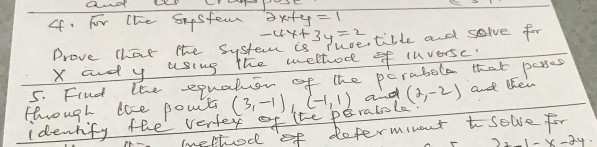 and
4. For the System 2x+y=1
-4x+3y=2
Prove that the System is invertible and solve for
x and y using the method of inverse.
5. Find the equation of the parabola that passes
through the points (3,-1), (-1,1) and (2,-2) and then
identify the vertex of the parabola.
method of determinant to solve for